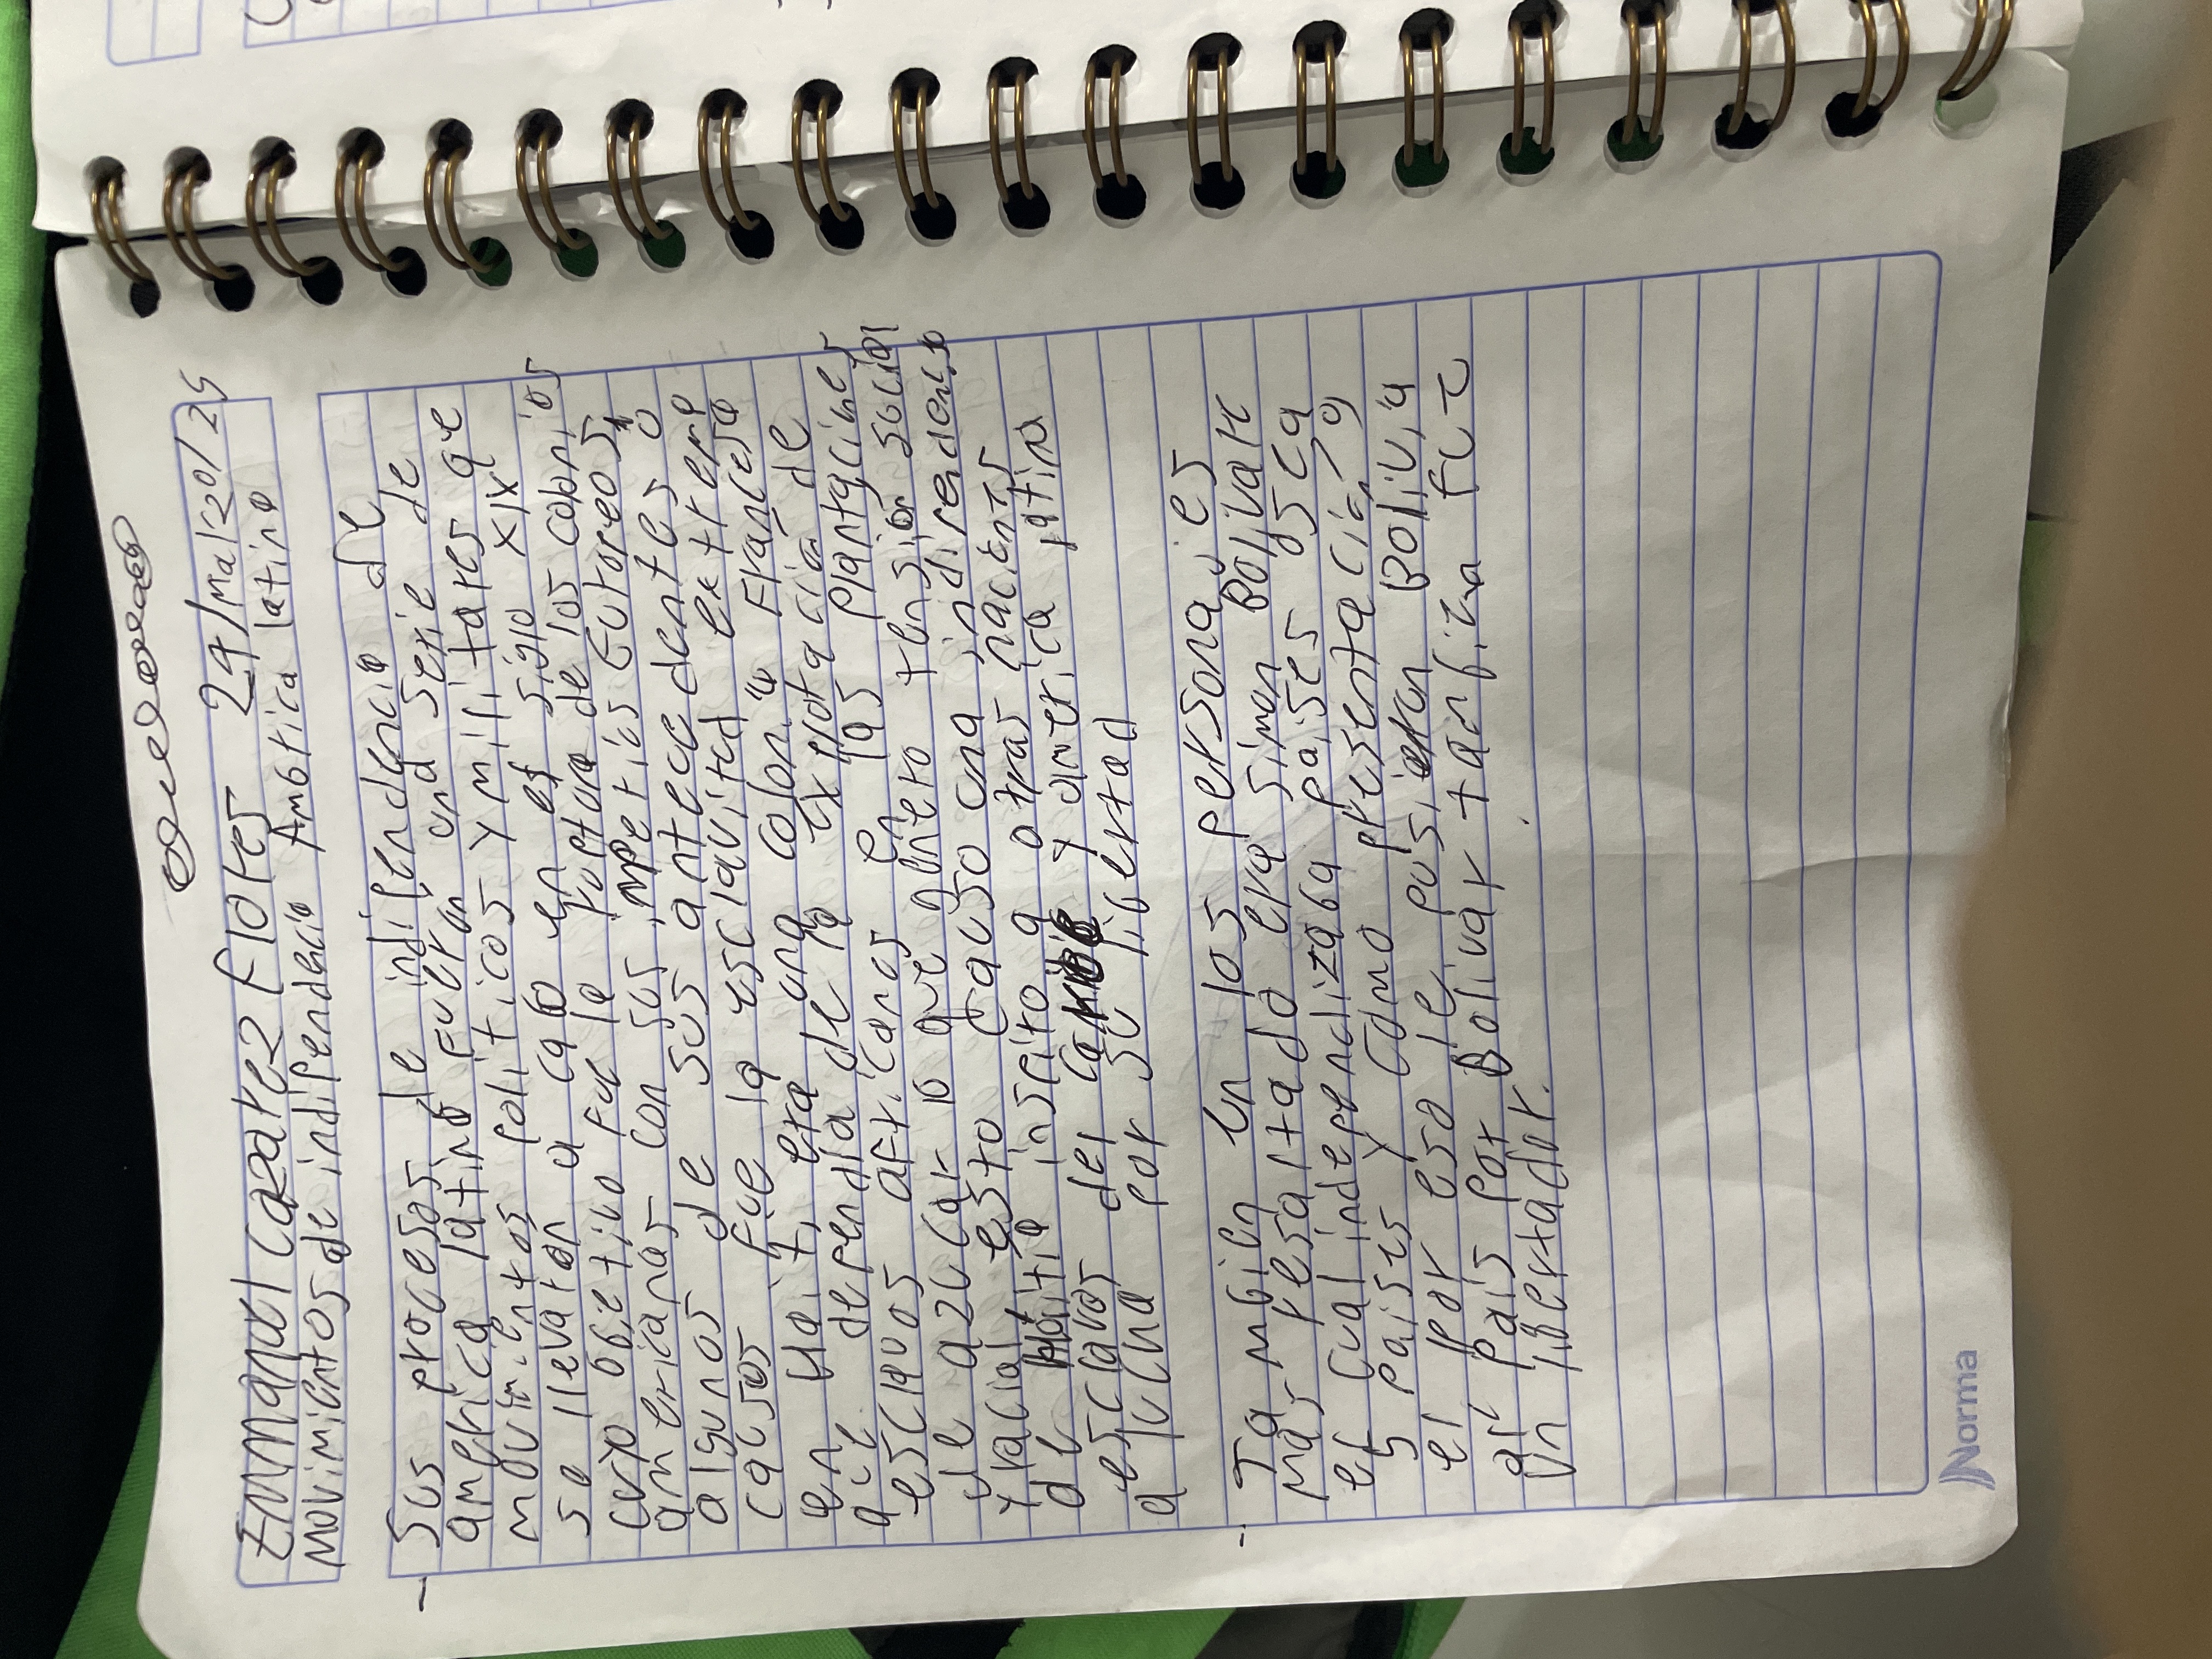 Emmanuel Cazarez Flores 24/Mar/20/25
Movimientos de indipendecia Ambrica latina
- Sus procesos de indipendencia de
america latina fueron una serie de
movimientos politicos y militares qe
se llevaron a cabo en el siglo XIX
cuyo objetivo fue la ruptura de los colonios
amerianas con sus imperios Eutopeos,
algunos de sus antecedentes o
causas fue la esclavitud extrema
en Haiti, era una colonia Francesa
que dependia de la explotación de
esclavos africanos en las plantacines
de azucar lo que genero tensión social
y racial esto causo una indirendencia
de Haitia inscito a otras nacients
esclavos del caribe y america latina
a lucha por su libertad
- Tambien en los personajes
mas resaltado era Simon Bolivar
el cual independizaba paises y sca
5 paises y como presentacia, g
el por eso le pusieron Bolivia
al pais por Bolivar tanbien fue
un libertador.
Norma